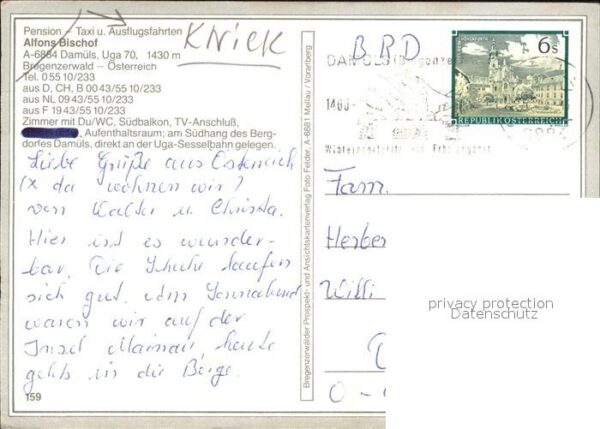 Pension – Taxi u. Ausflugsfahrten
Alfons Bischof
A-6884 Damüls, Uga 70, 1430 m
Bregenzerwald – Österreich
Tel. 0 55 10/233
aus D, CH, B 00 43/55 10/233
aus NL 09 43/55 10/233
aus F 19 43/55 10/233
Zimmer mit Du/WC, Südbalkon, TV-Anschluß,
, Aufenthaltsraum; am Südhang des Berg-
dorfes Damüls, direkt an der Uga-Sesselbahn gelegen.
KNICK
Liebe Grüße aus Österreich
(x da wohnen wir)
von Walter u. Christa.
Hier ist es wunder-
bar. Die Schuhe laufen
sich gut. Am Sonnabend
waren wir auf der
Insel Mainau, heute
gehts in die Berge.
159
Bregenzerwälder Prospekt- und Ansichtskartenverlag Foto Felder, A-6881 Mellau / Vorarlberg
BRD
6 S
REPUBLIK ÖSTERREICH
Fam.
Willi
O -
privacy protection
Datenschutz